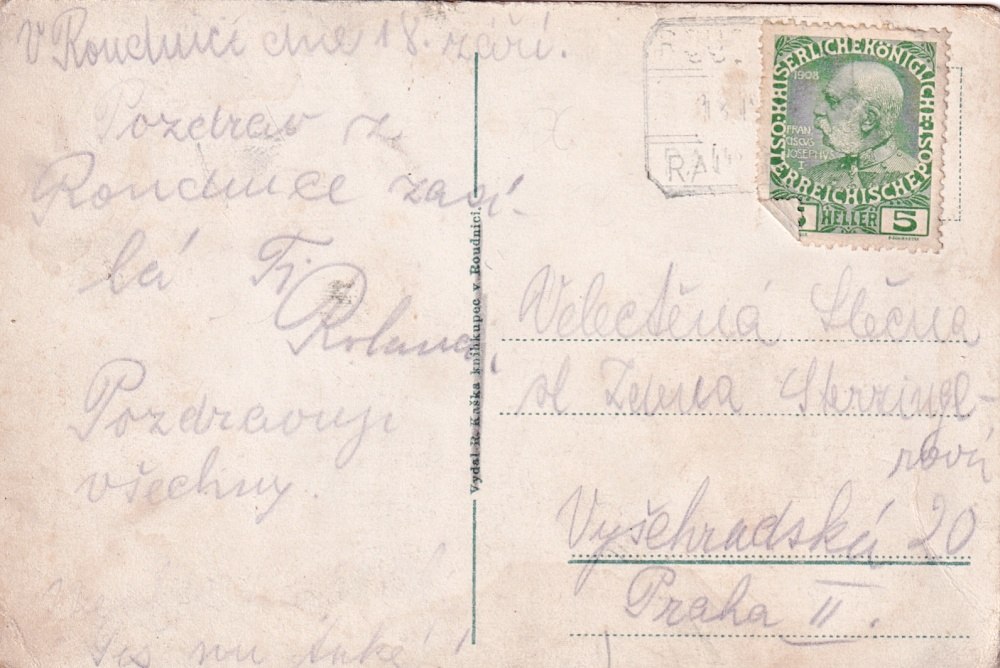 V Roudnici dne 18. září.
Pozdrav z
Roudnice zasí-
lá Ti
Roland
Pozdravuji
všechny.
Vydal R. Kaška knihkupec v Roudnici.
KAISERLICHEKÖNIGLICHE
ÖSTERREICHISCHEPOST
1908
FRAN
CISCVS
JOSEPHVS
I
5 HELLER 5
Velectěná Slečna
sl Zdena
Vyšehradská 20
Praha II.